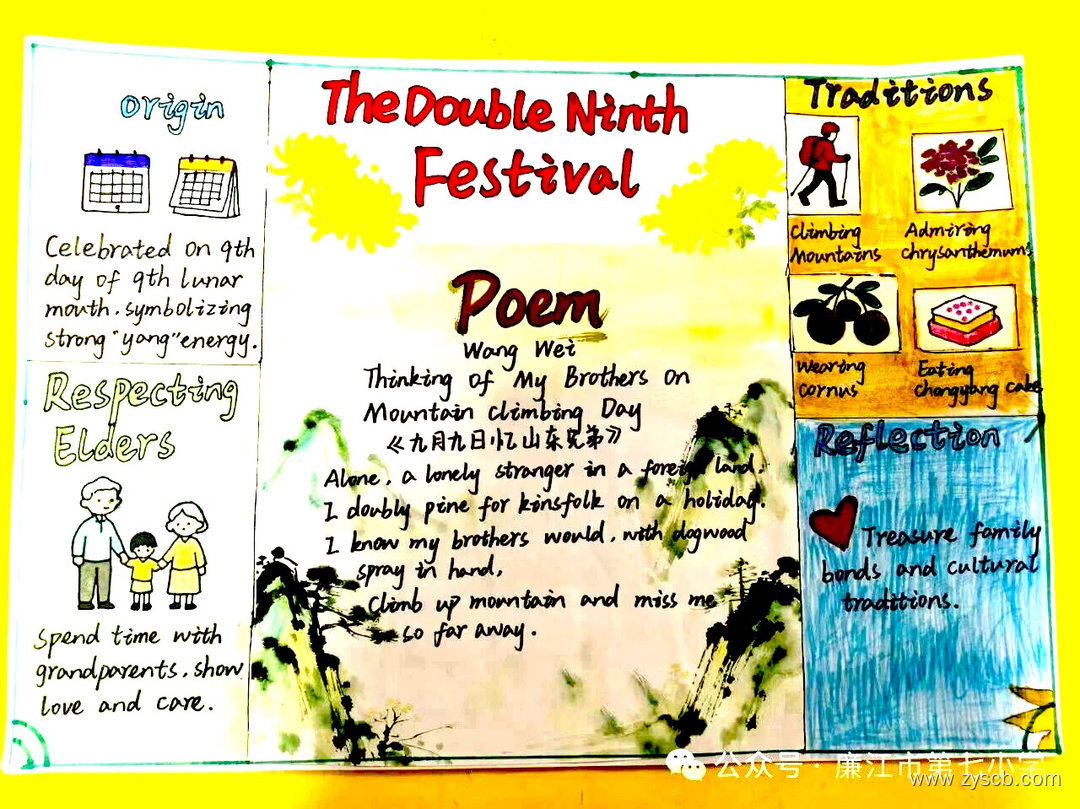 The Double Ninth
Festival
Origin
Celebrated on 9th
day of 9th lunar
mouth, symbolizing
strong "yang" energy.
Respecting
Elders
Spend time with
grandparents, show
love and care.
Poem
Wang Wei
Thinking of My Brothers on
Mountain climbing Day
《九月九日忆山东兄弟》
Alone, a lonely stranger in a foreign land,
I doubly pine for kinsfolk on a holiday.
I know my brothers would, with dogwood
spray in hand,
Climb up mountain and miss me
so far away.
Traditions
Climbing
Mountains
Admiring
chrysanthemums
Wearing
cornus
Eating
chongyang cake
Reflection
Treasure family
bonds and cultural
traditions.
公众号·廉江市第七小学
www.zyscb.com